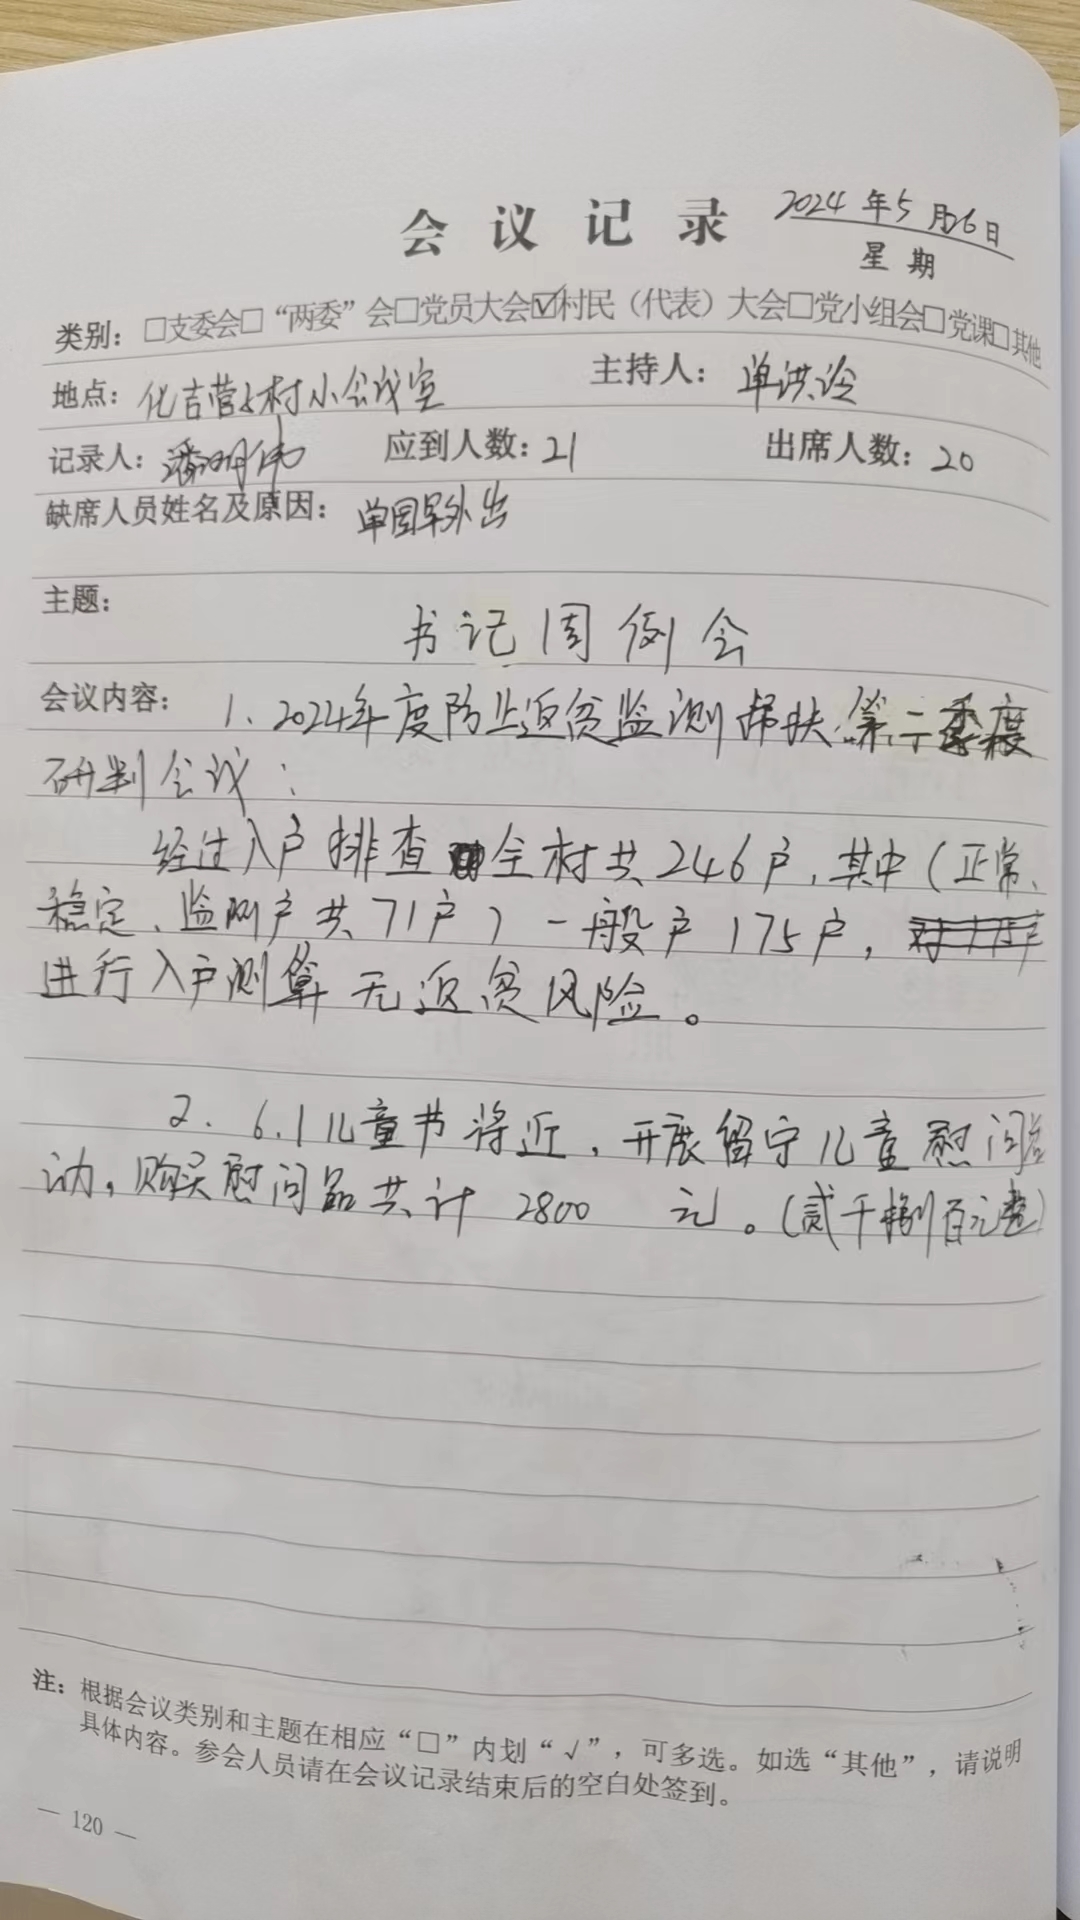 会议记录
2024年5月26日
星期
类别：□支委会□“两委”会□党员大会☑村民（代表）大会□党小组会□党课□其他
地点：化吉营子村小会议室 主持人：单洪
记录人：潘明伟 应到人数：21 出席人数：20
缺席人员姓名及原因：单国军外出
主题：
书记周例会
会议内容：1、2024年度防止返贫监测帮扶第二季度
研判会议：
经过入户排查全村共246户，其中（正常、
稳定、监测户共71户）一般户175户，
进行入户测算无返贫风险。
2. 6.1儿童节将近，开展留守儿童慰问活
动，购买慰问品共计 2800 元。（贰千捌百元整）
注：根据会议类别和主题在相应“□”内划“√”，可多选。如选“其他”，请说明
具体内容。参会人员请在会议记录结束后的空白处签到。
— 120 —